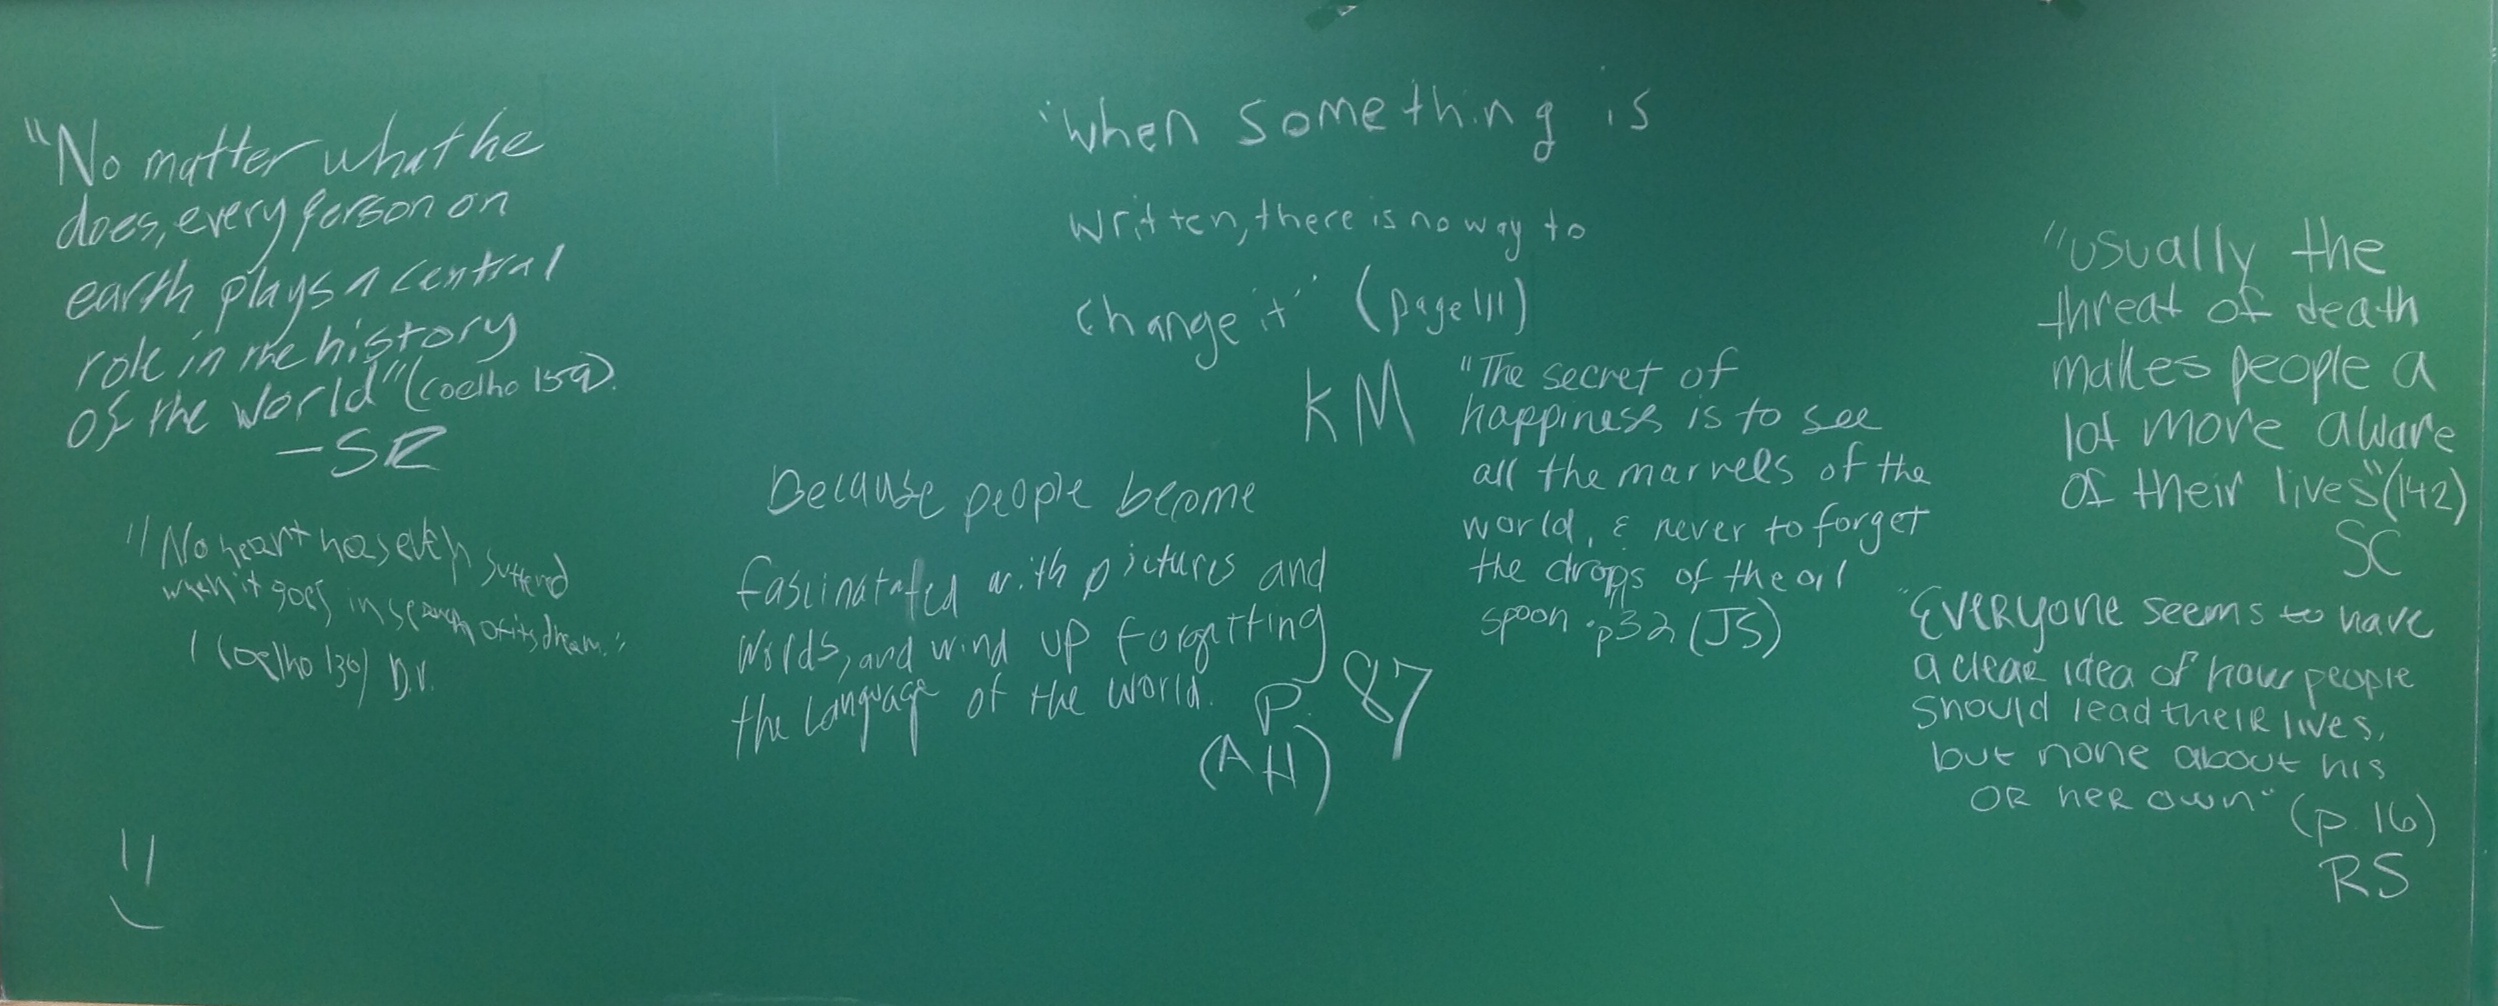 "No matter what he
does, every person on
earth plays a central
role in the history
of the world" (Coelho 159).
- SR
"No heart has ever suffered
when it goes in search of its dream."
(Coelho 130) D.V.
"When something is
written, there is no way to
change it" (page 111)
KM
Because people become
fascinatated with pictures and
words, and wind up forgetting
the language of the world. P. 87
(AH)
"The secret of
happiness is to see
all the marvels of the
world, & never to forget
the drops of the oil
spoon." p32 (JS)
"usually the
threat of death
makes people a
lot more aware
of their lives" (142)
SC
"Everyone seems to have
a clear idea of how people
should lead their lives,
but none about his
or her own" (p. 16)
RS